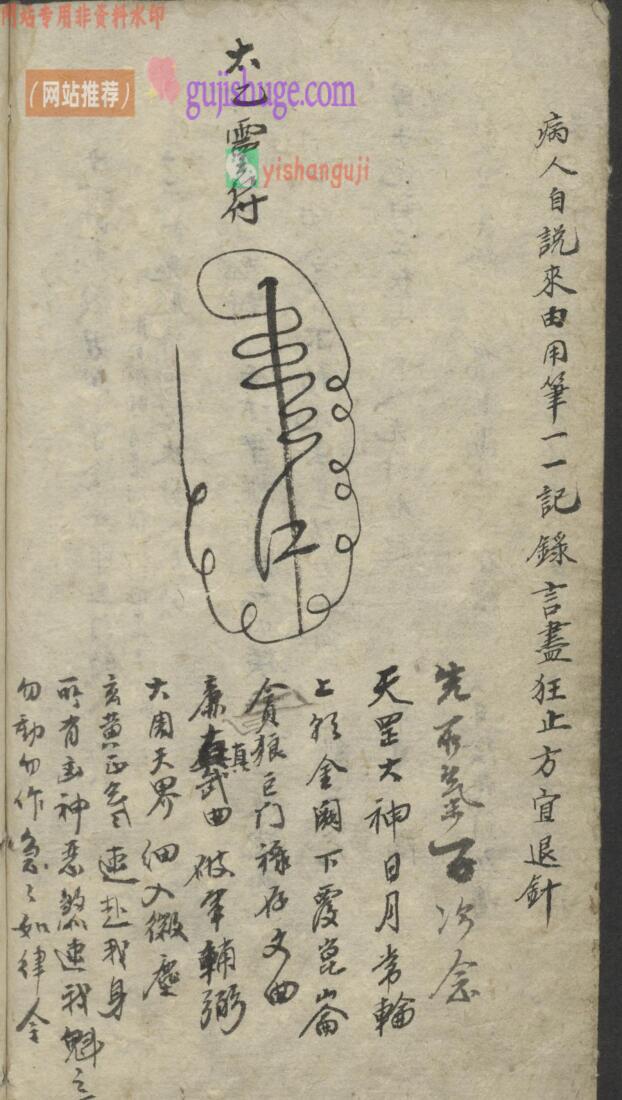 网站专用非资料水印
（网站推荐）
gujishuge.com
yishanguji
病人自說來由用筆一一記錄言盡狂止方宜退針
太乙靈符
先 炁 次念
天罡大神日月常輪
上 金闕下覆崑崙
貪狼巨门祿存文曲
廉真武曲破軍輔弼
大周天界细入微塵
玄黄正炁速赴我身
所有凶神惡煞速 我魁之
勿動勿作急々如律令